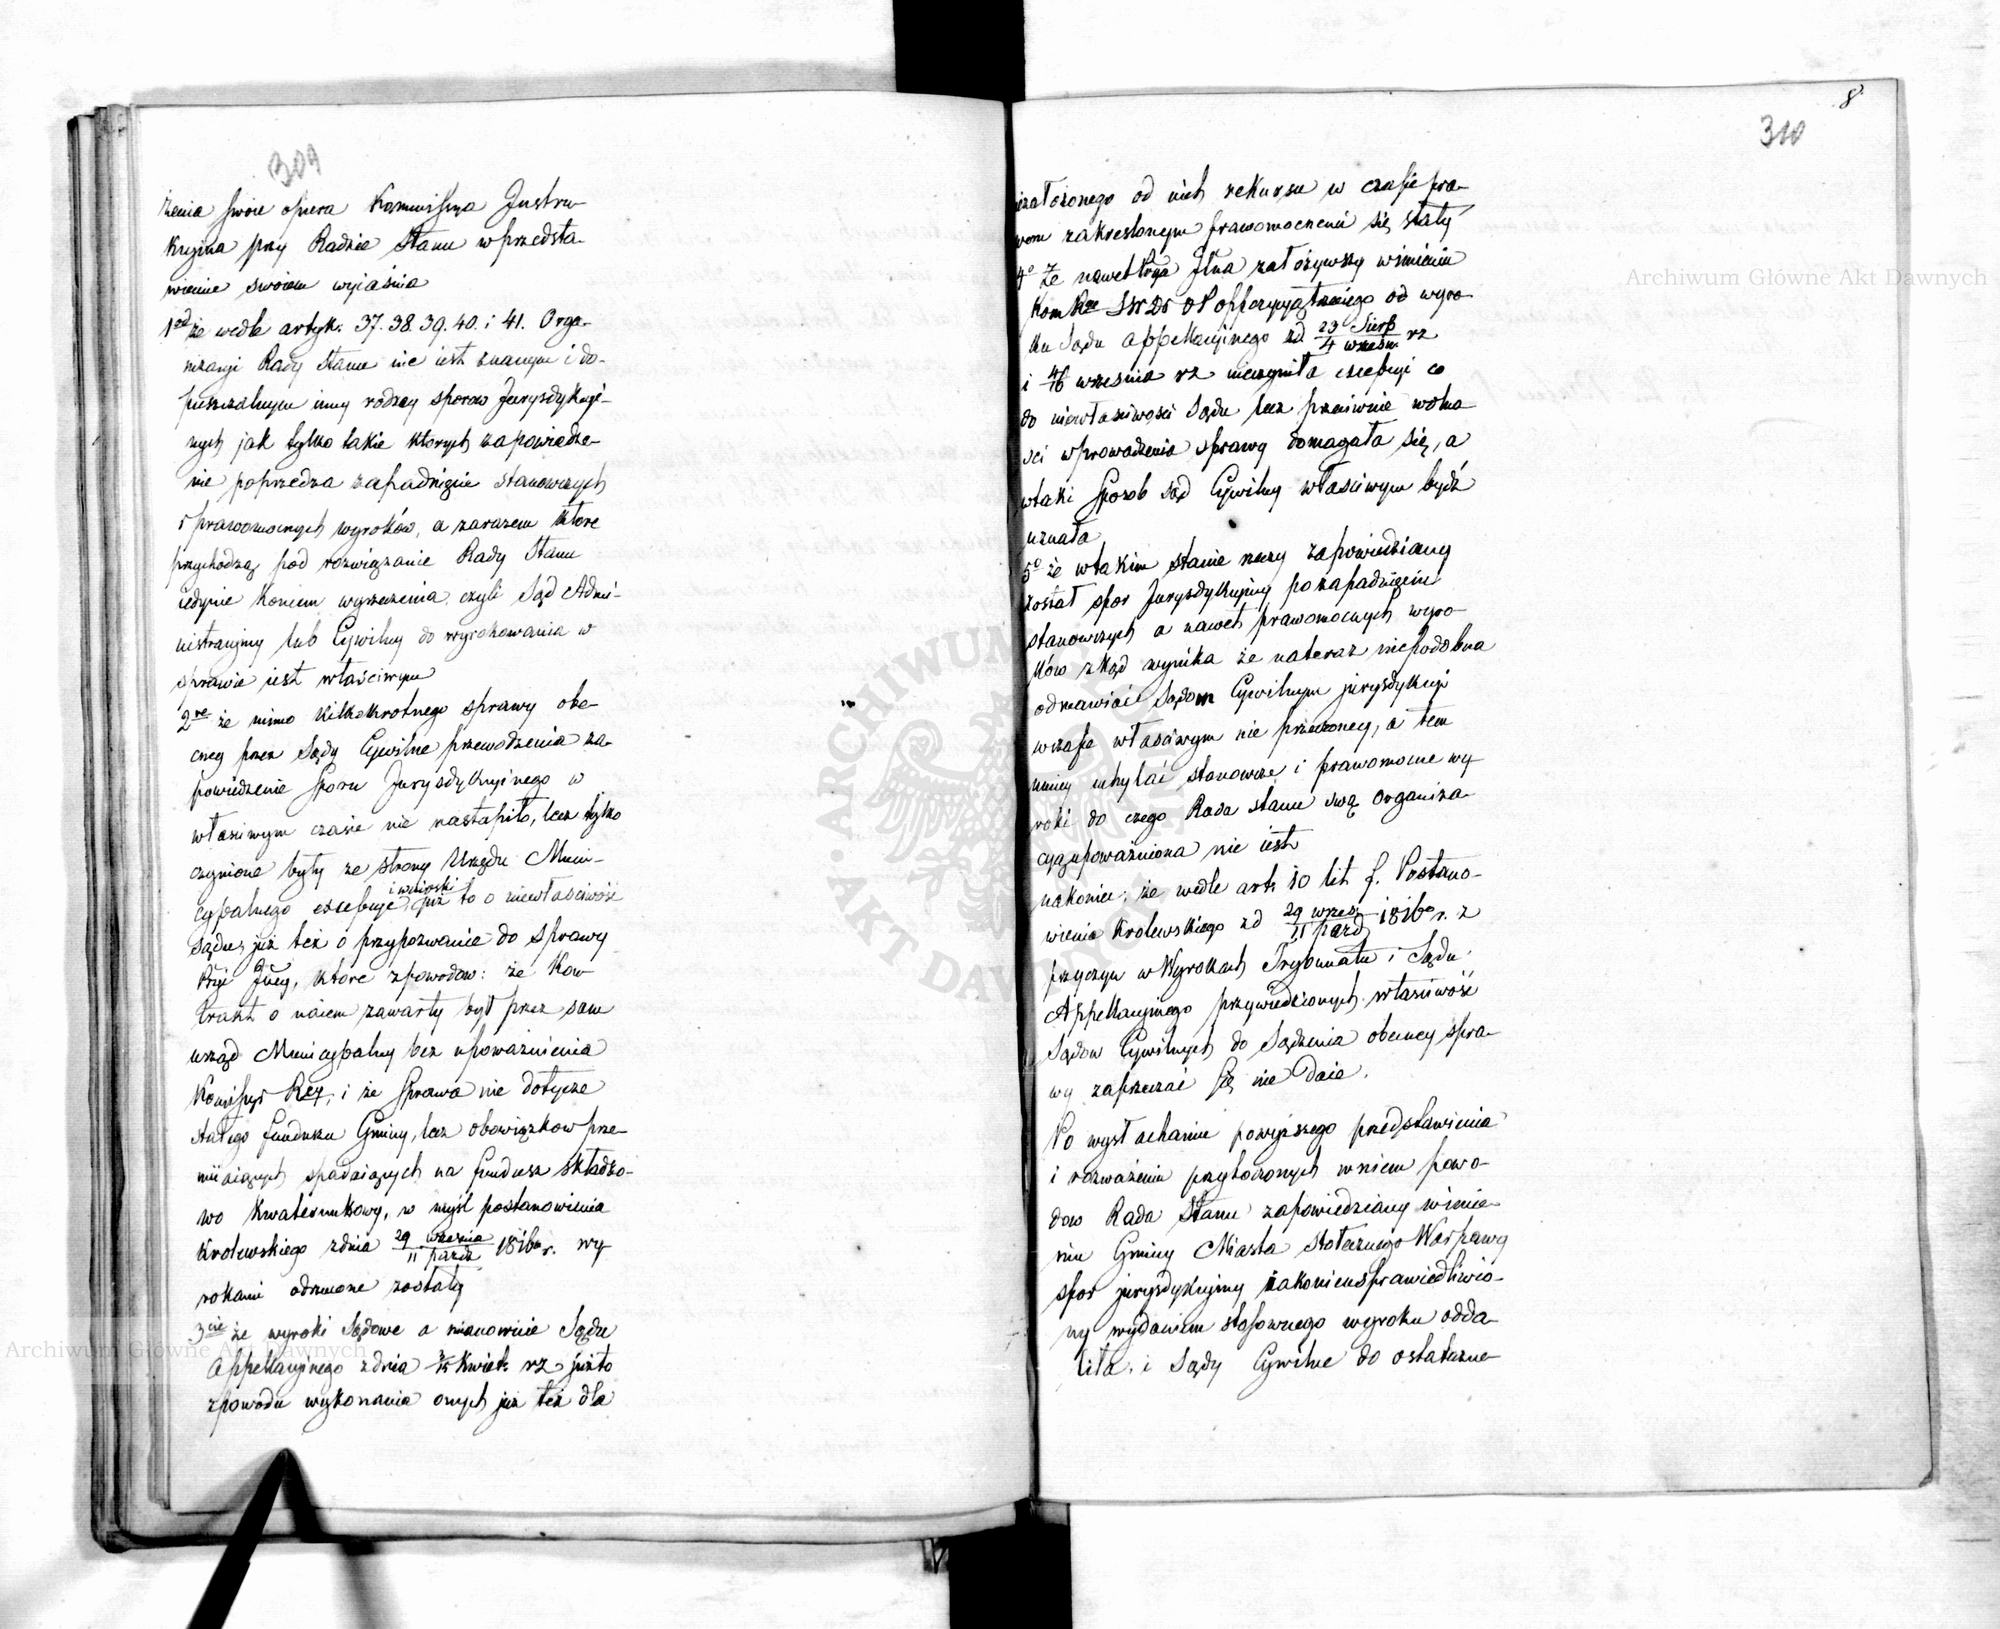 309
żenia swoie opiera Kommissya Instru-
kcyjna przy Radzie Stanu w przedsta-
wienie swoiem wyiaśnia
1od że wedle artyk. 37. 38. 39. 40. i 41. Orga-
nizacyi Rady Stanu nie iest znanym i do-
puszczalnym inny rodzay sporów Jurysdykcyi-
nych jak tylko takie których zapowiedze-
nie poprzedza zapadnięcie stanowczych
i prawomocnych wyroków, a zarazem które
przychodzą pod rozwiązanie Rady Stanu
iedynie koncem wyrzeczenia czyli Sąd Admi-
nistracyjny lub Cywilny do wyrokowania w
sprawie iest właściwym
2re że mimo kilkokrotnego sprawy obe-
cney przez Sądy Cywilne przewodzenia za-
powiedzenie Sporu Jurysdykcyinego w
właściwym czasie nie nastąpiło, lecz tylko
czynione były ze strony Urzędu Muni-
cypalnego excepcye i wnioski już to o niewłaściwość
Sądu, już też o przypozwanie do sprawy
, które z powodów: że Kon-
trakt o naiem zawarty był przez sam
urząd Municypalny bez upoważnienia
Kommissyi Rz, i że Sprawa nie dotycze
stałego funduszu Gminy, lecz obowiązków prze-
miiaiących spadaiących na fundusz składko-
wo kwaterunkowy, w myśl postanowienia
Królewskiego z dnia 29 września / 11 paźdz 1816 r. wy-
rokami odrzucone zostały
3cie że wyroki Sądowe a mianowicie Sądu
Appellacyjnego z dnia Kwiet. rz już to
z powodu wykonania onych już też dla
8
310
niezałożonego od nich rekursu w czasie pra-
wem zakreślonym prawomocnemi się stały
4o Że nawet założywszy w imieniu
Kom Rz SW Dr OP oppozycyą trzeciego od wyro-
ku Sądu appellacyinego zd 23 Sierp / 4 wrześn. rz
i 4/16 września rz nieczyniła excepcyi co
do niewłaściwości Sądu lecz przeciwnie wolno-
sci wprowadzenia sprawy domagała się, a
w taki sposób sąd Cywilny właściwym bydź
uznała
5o że w takim stanie rzeczy zapowiedziany
został spór Jurysdykcyiny po zapadnięciu
stanowczych a nawet prawomocnych wyro-
ków zkąd wynika że nateraz niepodobna
odmawiać Sądom Cywilnym jurysdykcyi
w czasie właściwym nie przeczoney, a tem
mniey uchylać stanowcze i prawomocne wy-
roki do czego Rada stanu swą organiza-
cyą upoważniona nie iest
nakoniec; że wedle art. 10 lit f. Postano-
wienia Królewskiego zd 29 wrześ / 11 paźd 1816 r. z
przyczyn w Wyrokach Trybunału i Sądu
Appellacyjnego przywiedzionych właściwość
Sądów Cywilnych do Sądzenia obecney spra-
wy zaprzeczać się nie daie.
Po wysłuchaniu powyższego przedstawienia
i rozważeniu przytoczonych w niem powo-
dów Rada Stanu zapowiedziany w imie-
niu Gminy Miasta Stołecznego Warszawy
spór jurysdykcyjny iako nieusprawiedliwio-
ny wydaniem stosownego wyroku odda-
liła. i Sądy Cywilne do ostateczne-
Archiwum Główne Akt Dawnych
Archiwum Główne Akt Dawnych